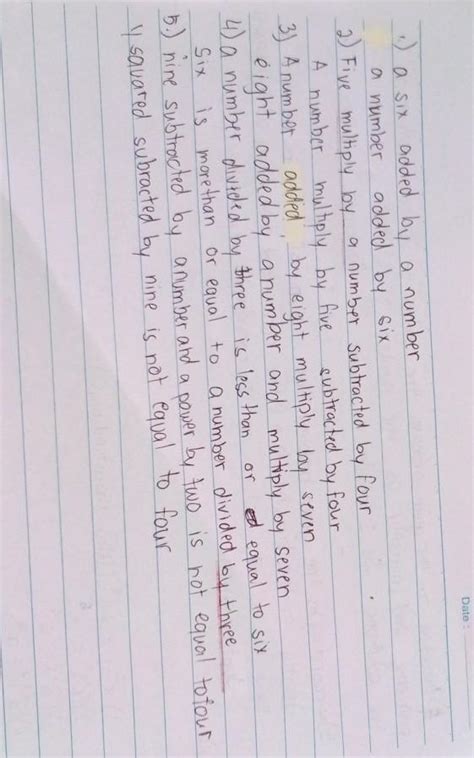 Date :
1.) a six added by a number
a number added by six
2) Five multiply by a number subtracted by four
A number multiply by five subtracted by four
3) A number added, by eight multiply by seven
eight added by a number and multiply by seven
4) a number divided by three is less than or equal to six
Six is morethan or equal to a number divided by three
5.) nine subtracted by a number and a power by two is not equal to four
y squared subracted by nine is not equal to four